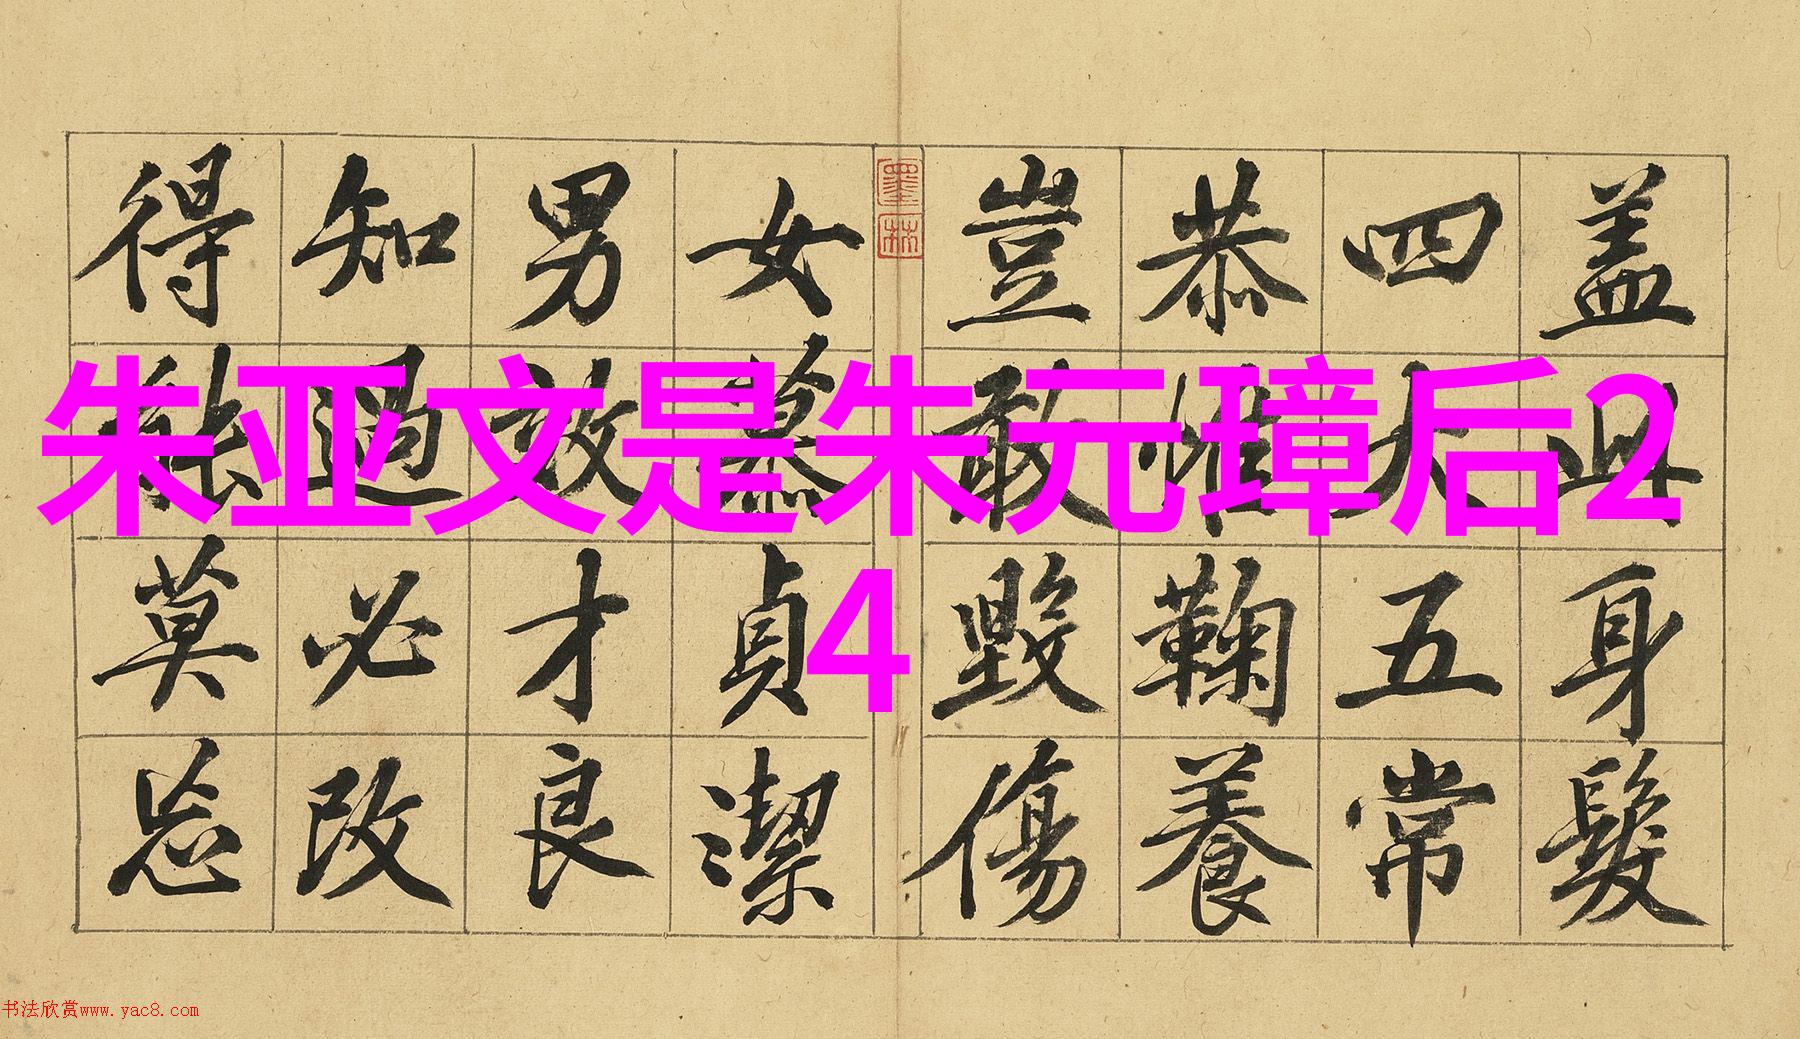 朱亚文是朱元璋后2
4
盖此身髮
四大五常
恭惟鞠養
豈敢毀傷
墨林
女慕貞潔
男效才良
知過必改
得能莫忘
书法欣赏www.yac8.com